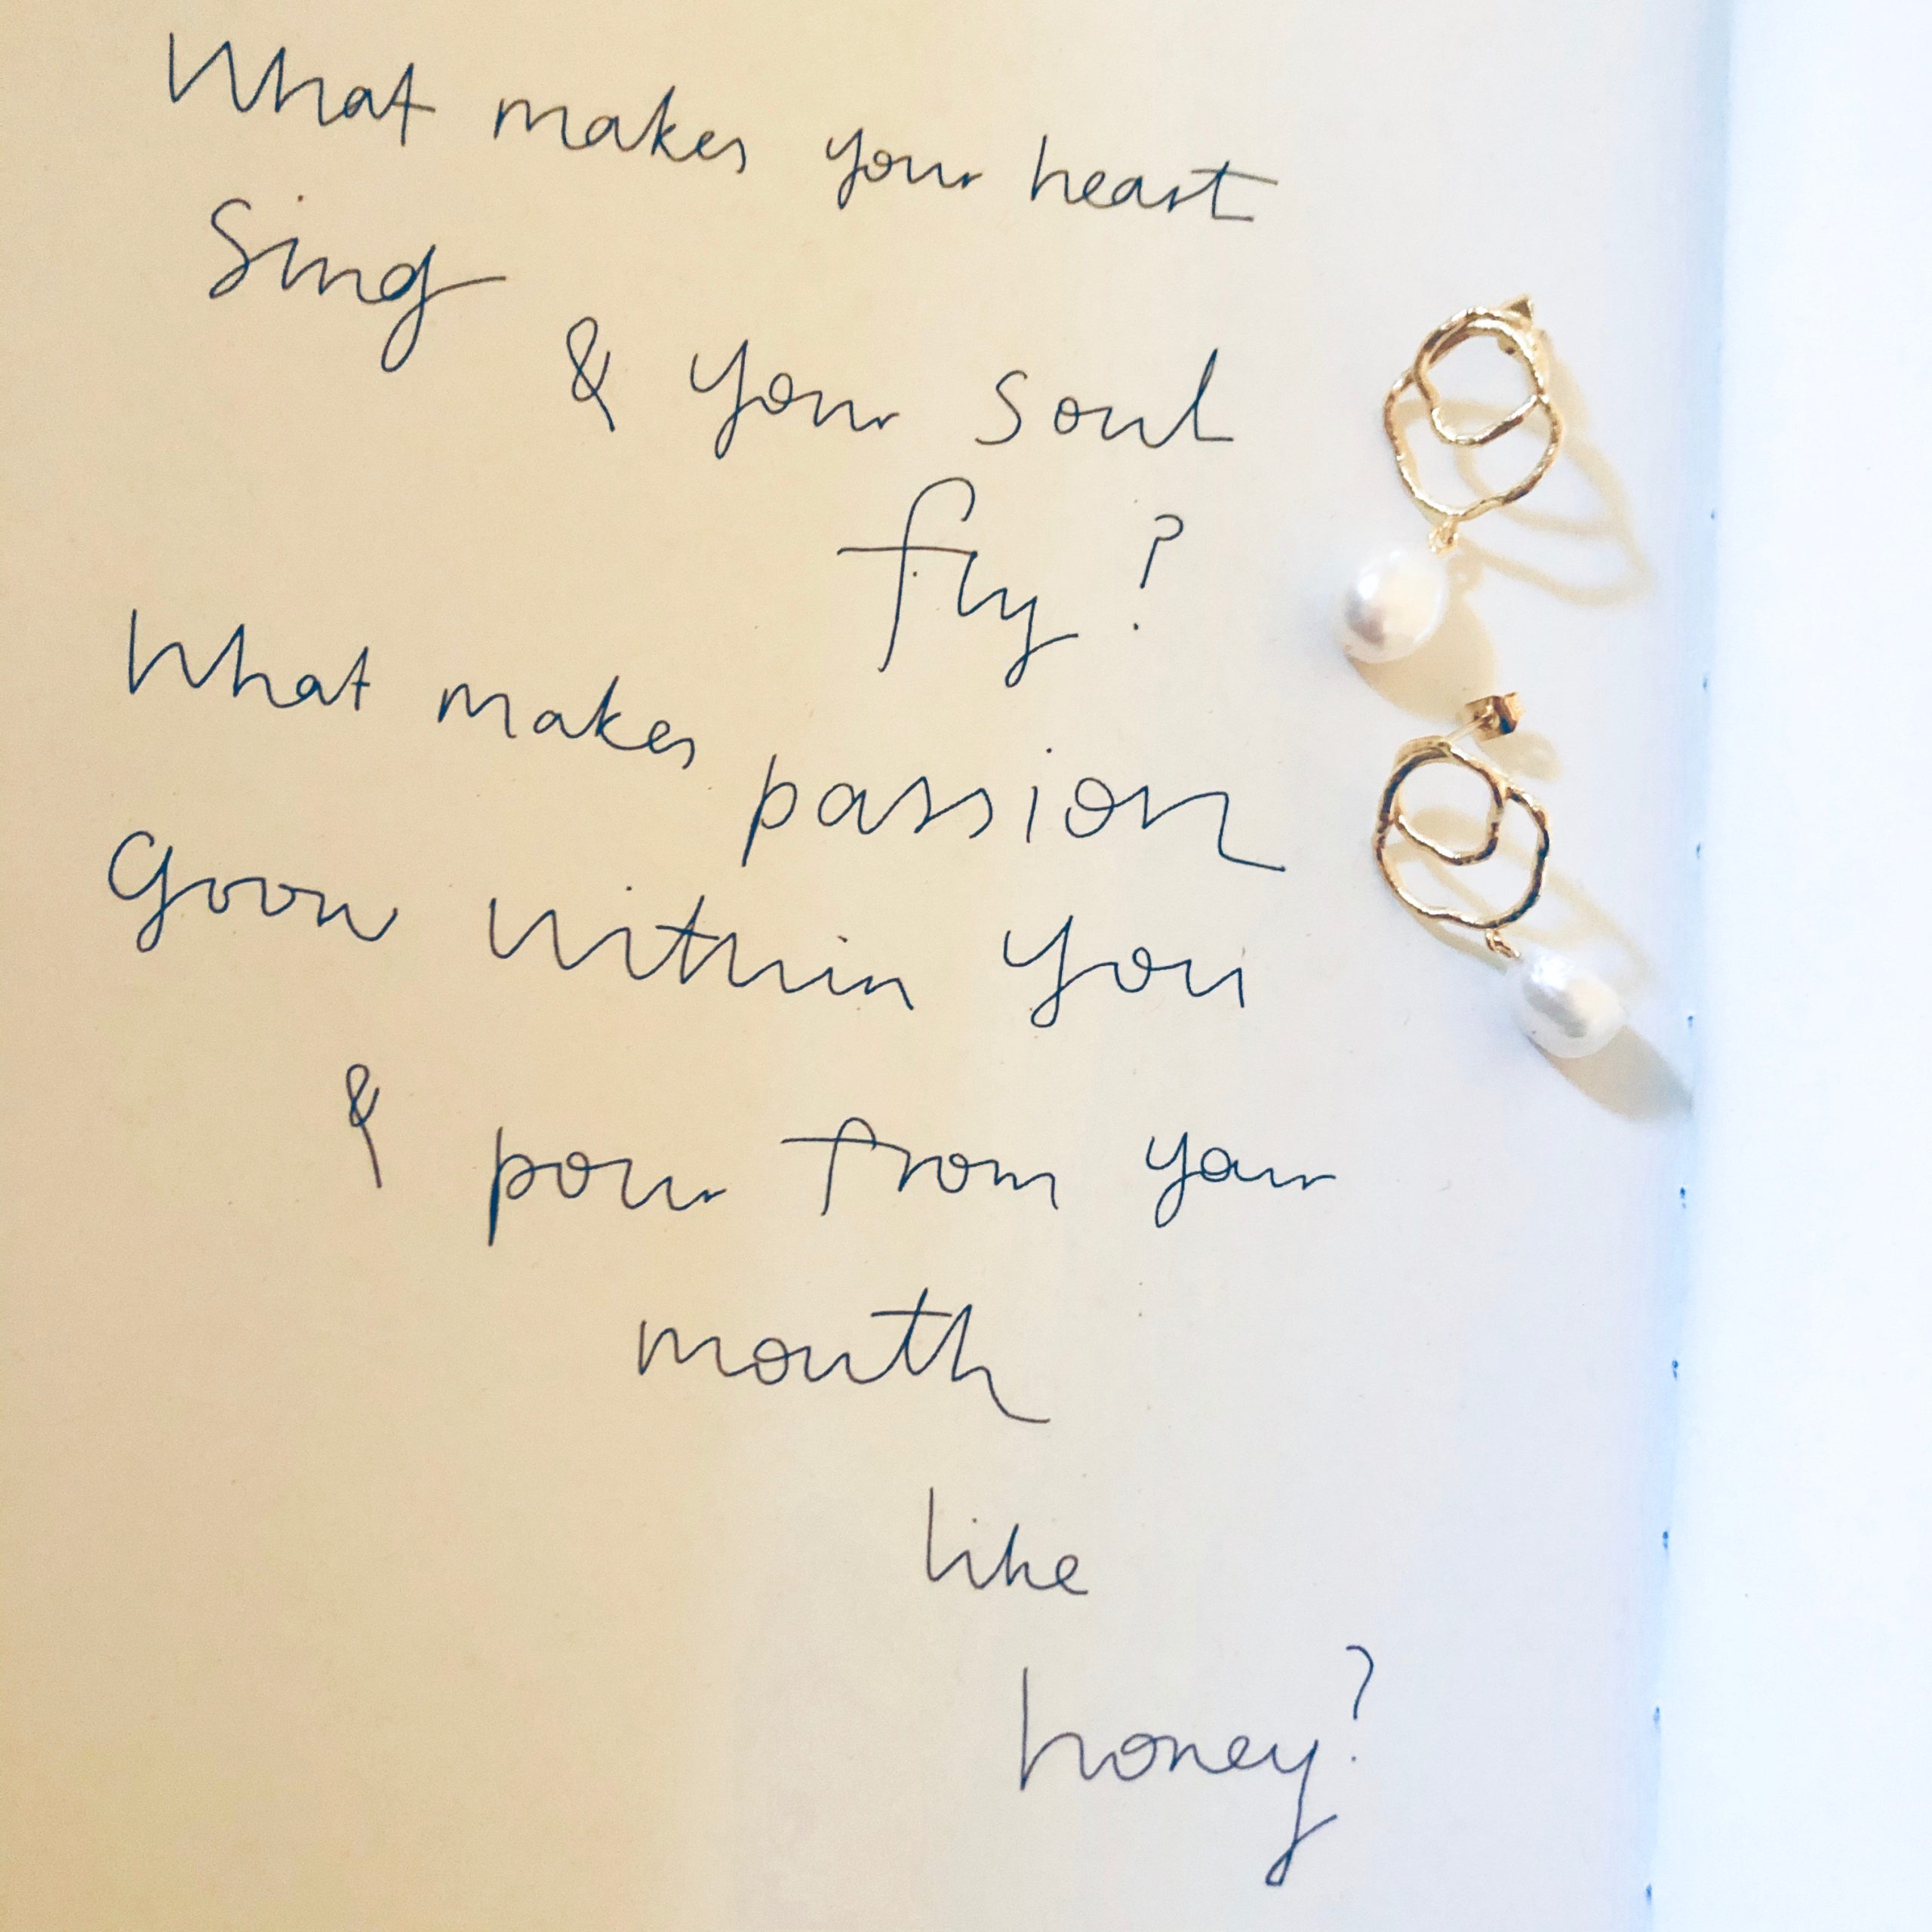 What makes your heart
Sing
& your soul
fly?
What makes passion
Grow within you
& pour from your
mouth
like
honey?